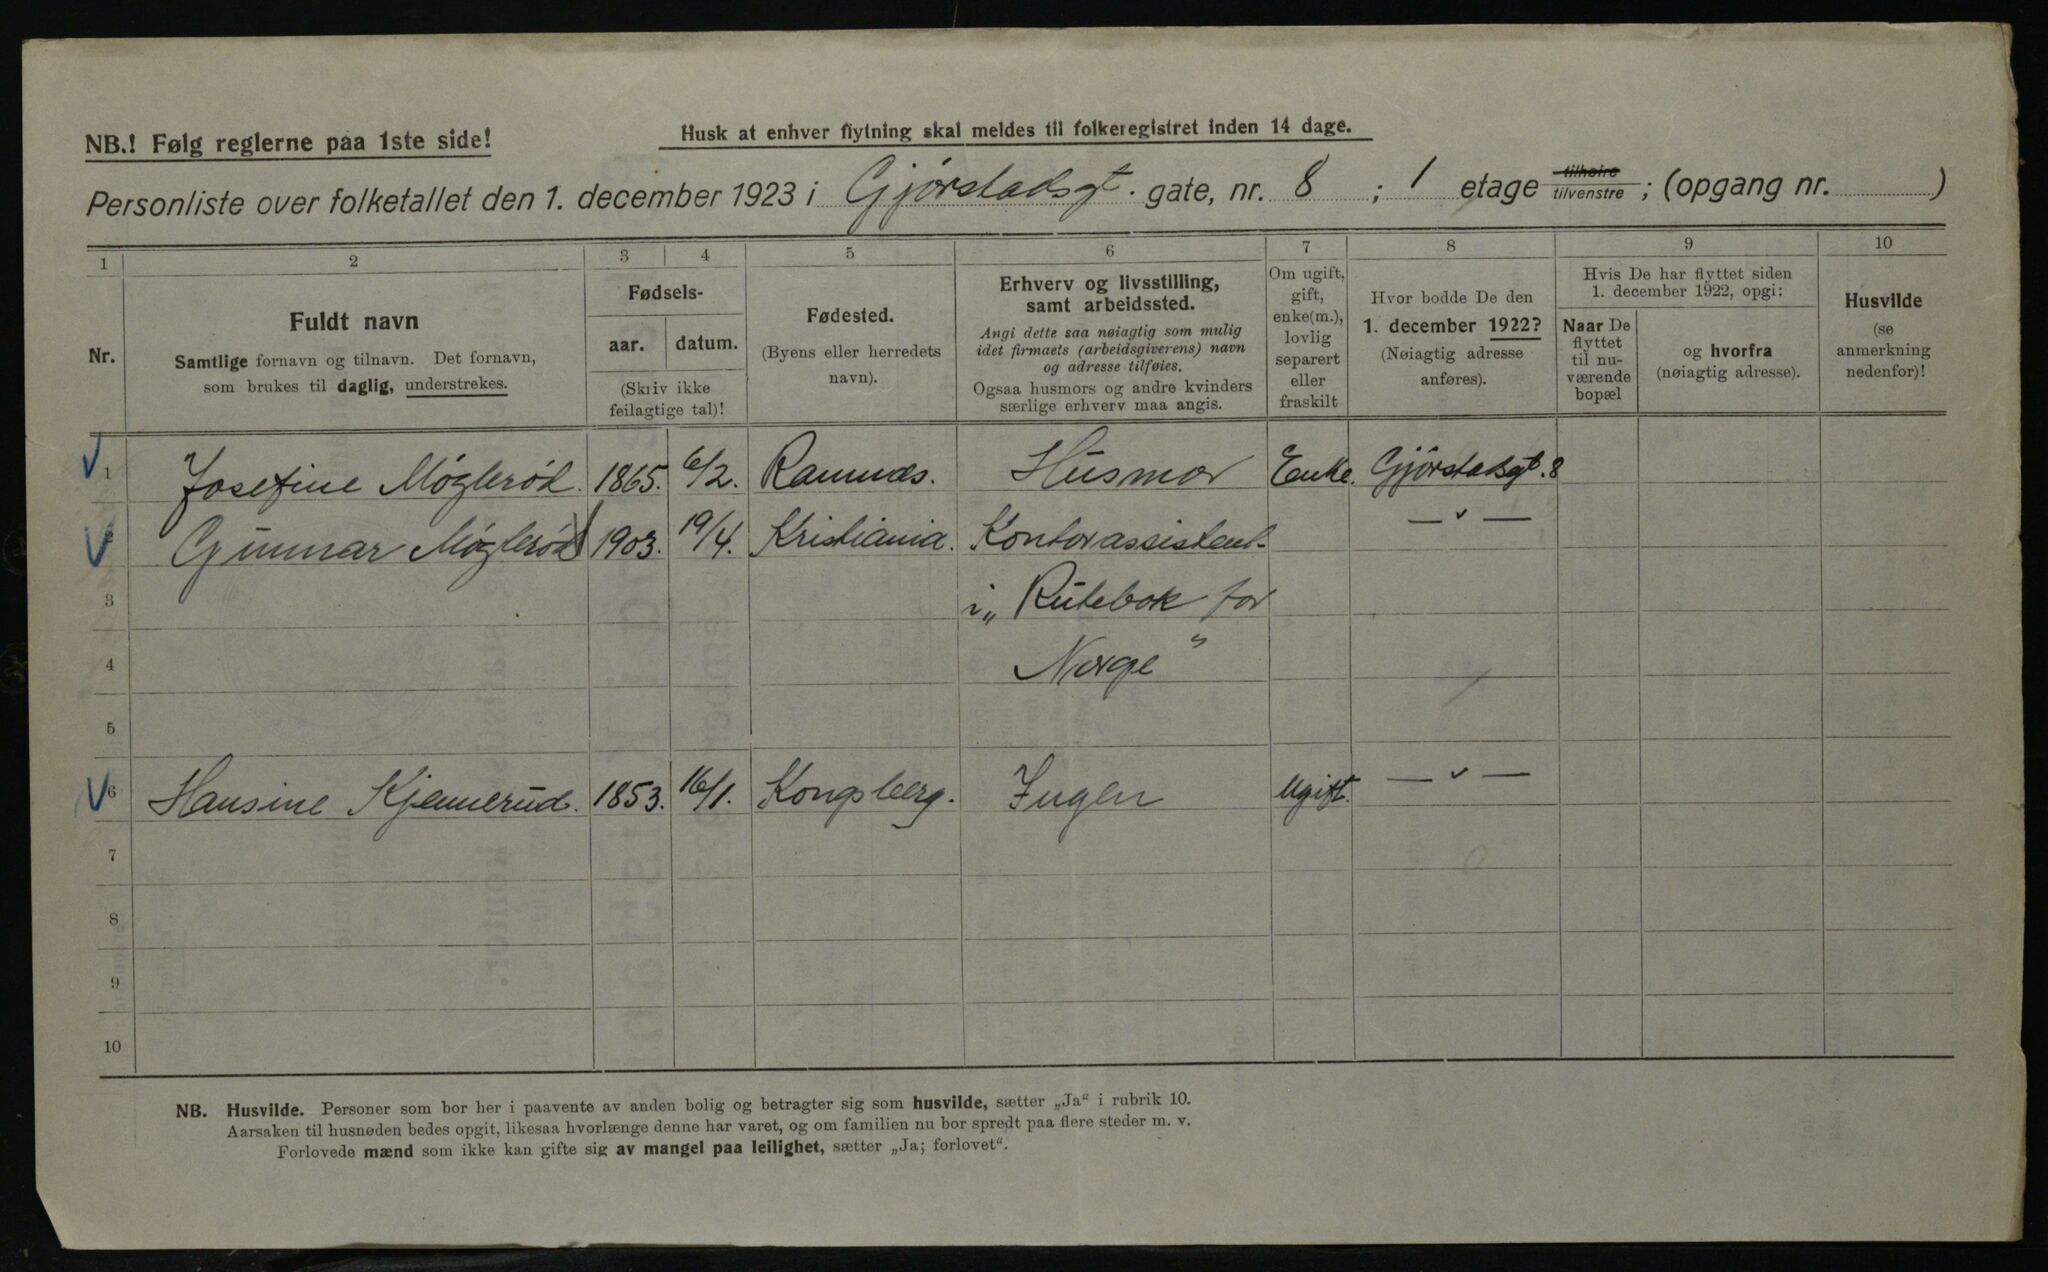 NB.! Følg reglerne paa 1ste side!
Husk at enhver flytning skal meldes til folkeregistret inden 14 dage.
Personliste over folketallet den 1. december 1923 i Gjørstadsgt. gate, nr. 8 ; 1 etage tilhøire tilvenstre ; (opgang nr. )
1 2 3 4 5 6 7 8 9 10
Nr.
Fuldt navn
Samtlige fornavn og tilnavn. Det fornavn,
som brukes til daglig, understrekes.
Fødsels-
aar. datum.
(Skriv ikke
feilagtige tal)!
Fødested.
(Byens eller herredets
navn).
Erhverv og livsstilling,
samt arbeidssted.
Angi dette saa nøiagtig som mulig
idet firmaets (arbeidsgiverens) navn
og adresse tilføies.
Ogsaa husmors og andre kvinders
særlige erhverv maa angis.
Om ugift,
gift,
enke(m.),
lovlig
separert
eller
fraskilt
Hvor bodde De den
1. december 1922?
(Nøiagtig adresse
anføres).
Hvis De har flyttet siden
1. december 1922, opgi:
Naar De
flyttet
til nu-
værende
bopæl
og hvorfra
(nøiagtig adresse).
Husvilde
(se
anmerkning
nedenfor)!
1 Josefine Møglerød. 1865. 6/2. Ramnæs. Husmor Enke. Gjørstadsgt. 8
2 Gunnar Møglerød 1903. 19/4. Kristiania. Kontorassistent — " —
3 i „Rutebok for
4 Norge"
5
6 Hansine Kjennerud. 1853. 16/1. Kongsberg. Ingen Ugift. — " —
7
8
9
10
NB. Husvilde. Personer som bor her i paavente av anden bolig og betragter sig som husvilde, sætter „Ja" i rubrik 10.
Aarsaken til husnøden bedes opgit, likesaa hvorlænge denne har varet, og om familien nu bor spredt paa flere steder m. v.
Forlovede mænd som ikke kan gifte sig av mangel paa leilighet, sætter „Ja; forlovet".